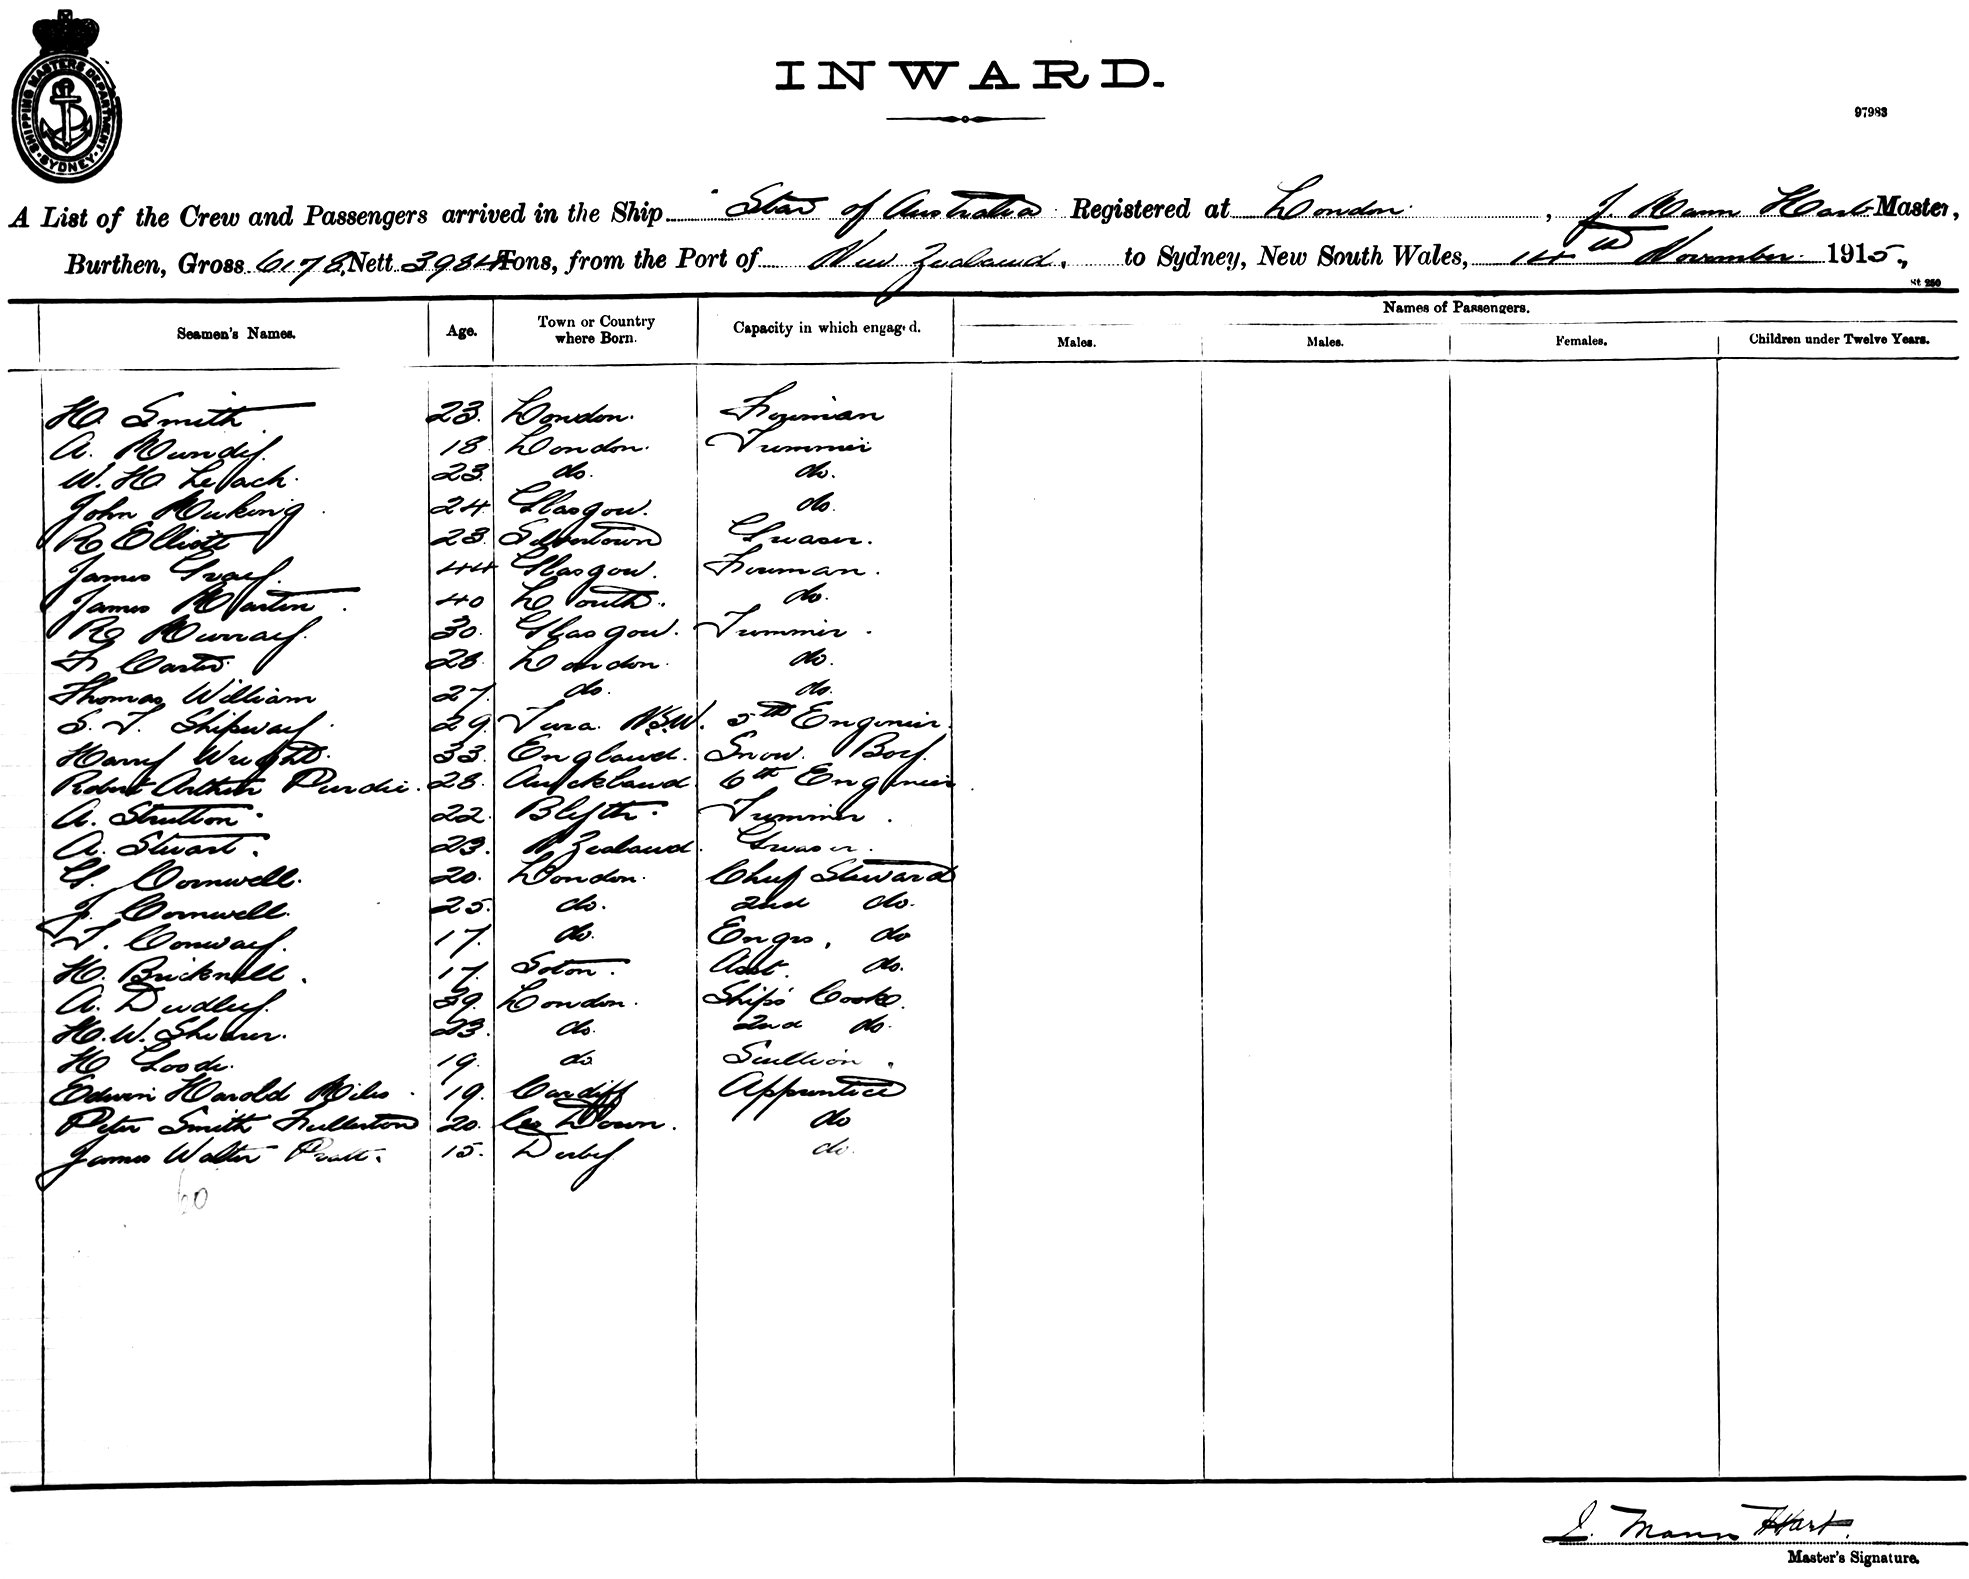 SHIPPING MASTERS DEPARTMENT · SYDNEY ·
INWARD.
97983
A List of the Crew and Passengers arrived in the Ship "Star of Australia Registered at London, J. Mann Hart Master,
Burthen, Gross 6178, Nett 3984 Tons, from the Port of New Zealand. to Sydney, New South Wales, 14th November 1915,
St 250
Seamen's Names. Age. Town or Country where Born. Capacity in which engaged. Names of Passengers.
Males. Males. Females. Children under Twelve Years.
H. Smith 23. London. Fireman
A. Mundy. 18 London. Trimmer
W. H. Leach. 23. do. do.
John 24 Glasgow. do.
R Elliott 23. Silvertown Greaser.
James Gray. 44 Glasgow. Fireman.
James Martin. 40 Louth. do.
R Murray. 30. Glasgow. Trimmer.
F. Carter 28. London. do.
Thomas William 27. do. do.
S. T. Shipway. 29. N.S.W. 5th Engineer.
Harry Wright. 33. England. Boy.
Robert Arthur Purdie. 28. Auckland 6th Engineer.
A. Strutton. 22. Blyth. Trimmer.
A. Stuart. 23. N Zealand. Greaser.
G. Cornwell. 20. London. Chief Steward
J. Cornwell. 25. do. 2nd do.
T. Conway. 17. do. Engrs, do
H. Bricknell. 17. Soton. Asst. do.
A. Dudley. 39. London. Ship's Cook.
H. W. Shearer. 23. do. 2nd do.
H Goode. 19. do Scullion.
Edwin Harold Miles. 19. Cardiff Apprentice
Peter Smith Fullerton 20. Co Down. do
James Walter Pratt. 15. Derby do.
60
J. Mann Hart.
Master's Signature.